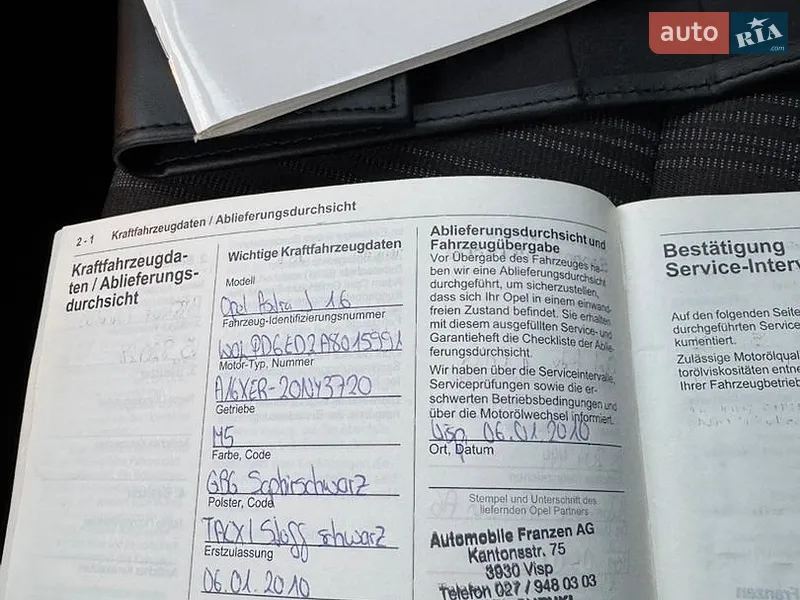 auto RIA .com
2 - 1 Kraftfahrzeugdaten / Ablieferungsdurchsicht
Kraftfahrzeugda-
ten / Ablieferungs-
durchsicht
Wichtige Kraftfahrzeugdaten
Modell
Opel Astra J 1.6
Fahrzeug-Identifizierungsnummer
W0LPD6ED2A8015991
Motor-Typ, Nummer
A16XER-20NY3720
Getriebe
M5
Farbe, Code
GBG Saphirschwarz
Polster, Code
TACX / Stoff schwarz
Erstzulassung
06.01.2010
Ablieferungsdurchsicht und
Fahrzeugübergabe
Vor Übergabe des Fahrzeuges ha-
ben wir eine Ablieferungsdurchsicht
durchgeführt, um sicherzustellen,
dass sich Ihr Opel in einem einwand-
freien Zustand befindet. Sie erhalten
mit diesem ausgefüllten Service- und
Garantieheft die Checkliste der Ablie-
ferungsdurchsicht.
Wir haben über die Serviceintervalle,
Serviceprüfungen sowie die er-
schwerten Betriebsbedingungen und
über die Motorölwechsel informiert.
Visp, 06.01.2010
Ort, Datum
Stempel und Unterschrift des
liefernden Opel Partners
Automobile Franzen AG
Kantonsstr. 75
3930 Visp
Telefon 027 / 948 03 03
Bestätigung
Service-Interv
Auf den folgenden Seite
durchgeführten Service
kumentiert.
Zulässige Motorölqual
torölviskositäten entne
Ihrer Fahrzeugbetrieb